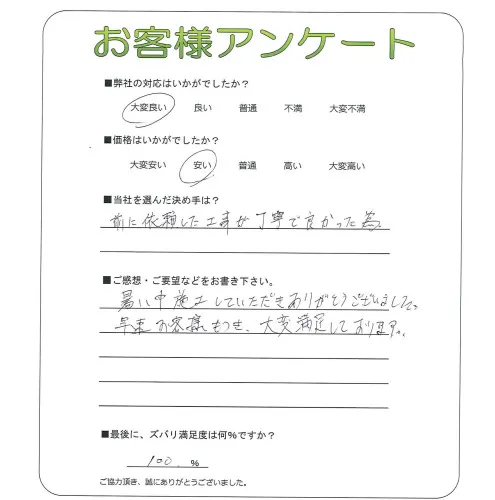 お客様アンケート
■弊社の対応はいかがでしたか？
大変良い 良い 普通 不満 大変不満
■価格はいかがでしたか？
大変安い 安い 普通 高い 大変高い
■当社を選んだ決め手は？
前に依頼した工事が丁寧で良かった為
■ご感想・ご要望などをお書き下さい。
暑い中施工していただきありがとうございました。
早速お客様もつき、大変満足しております。
■最後に、ズバリ満足度は何%ですか？
100 %
ご協力頂き、誠にありがとうございました。